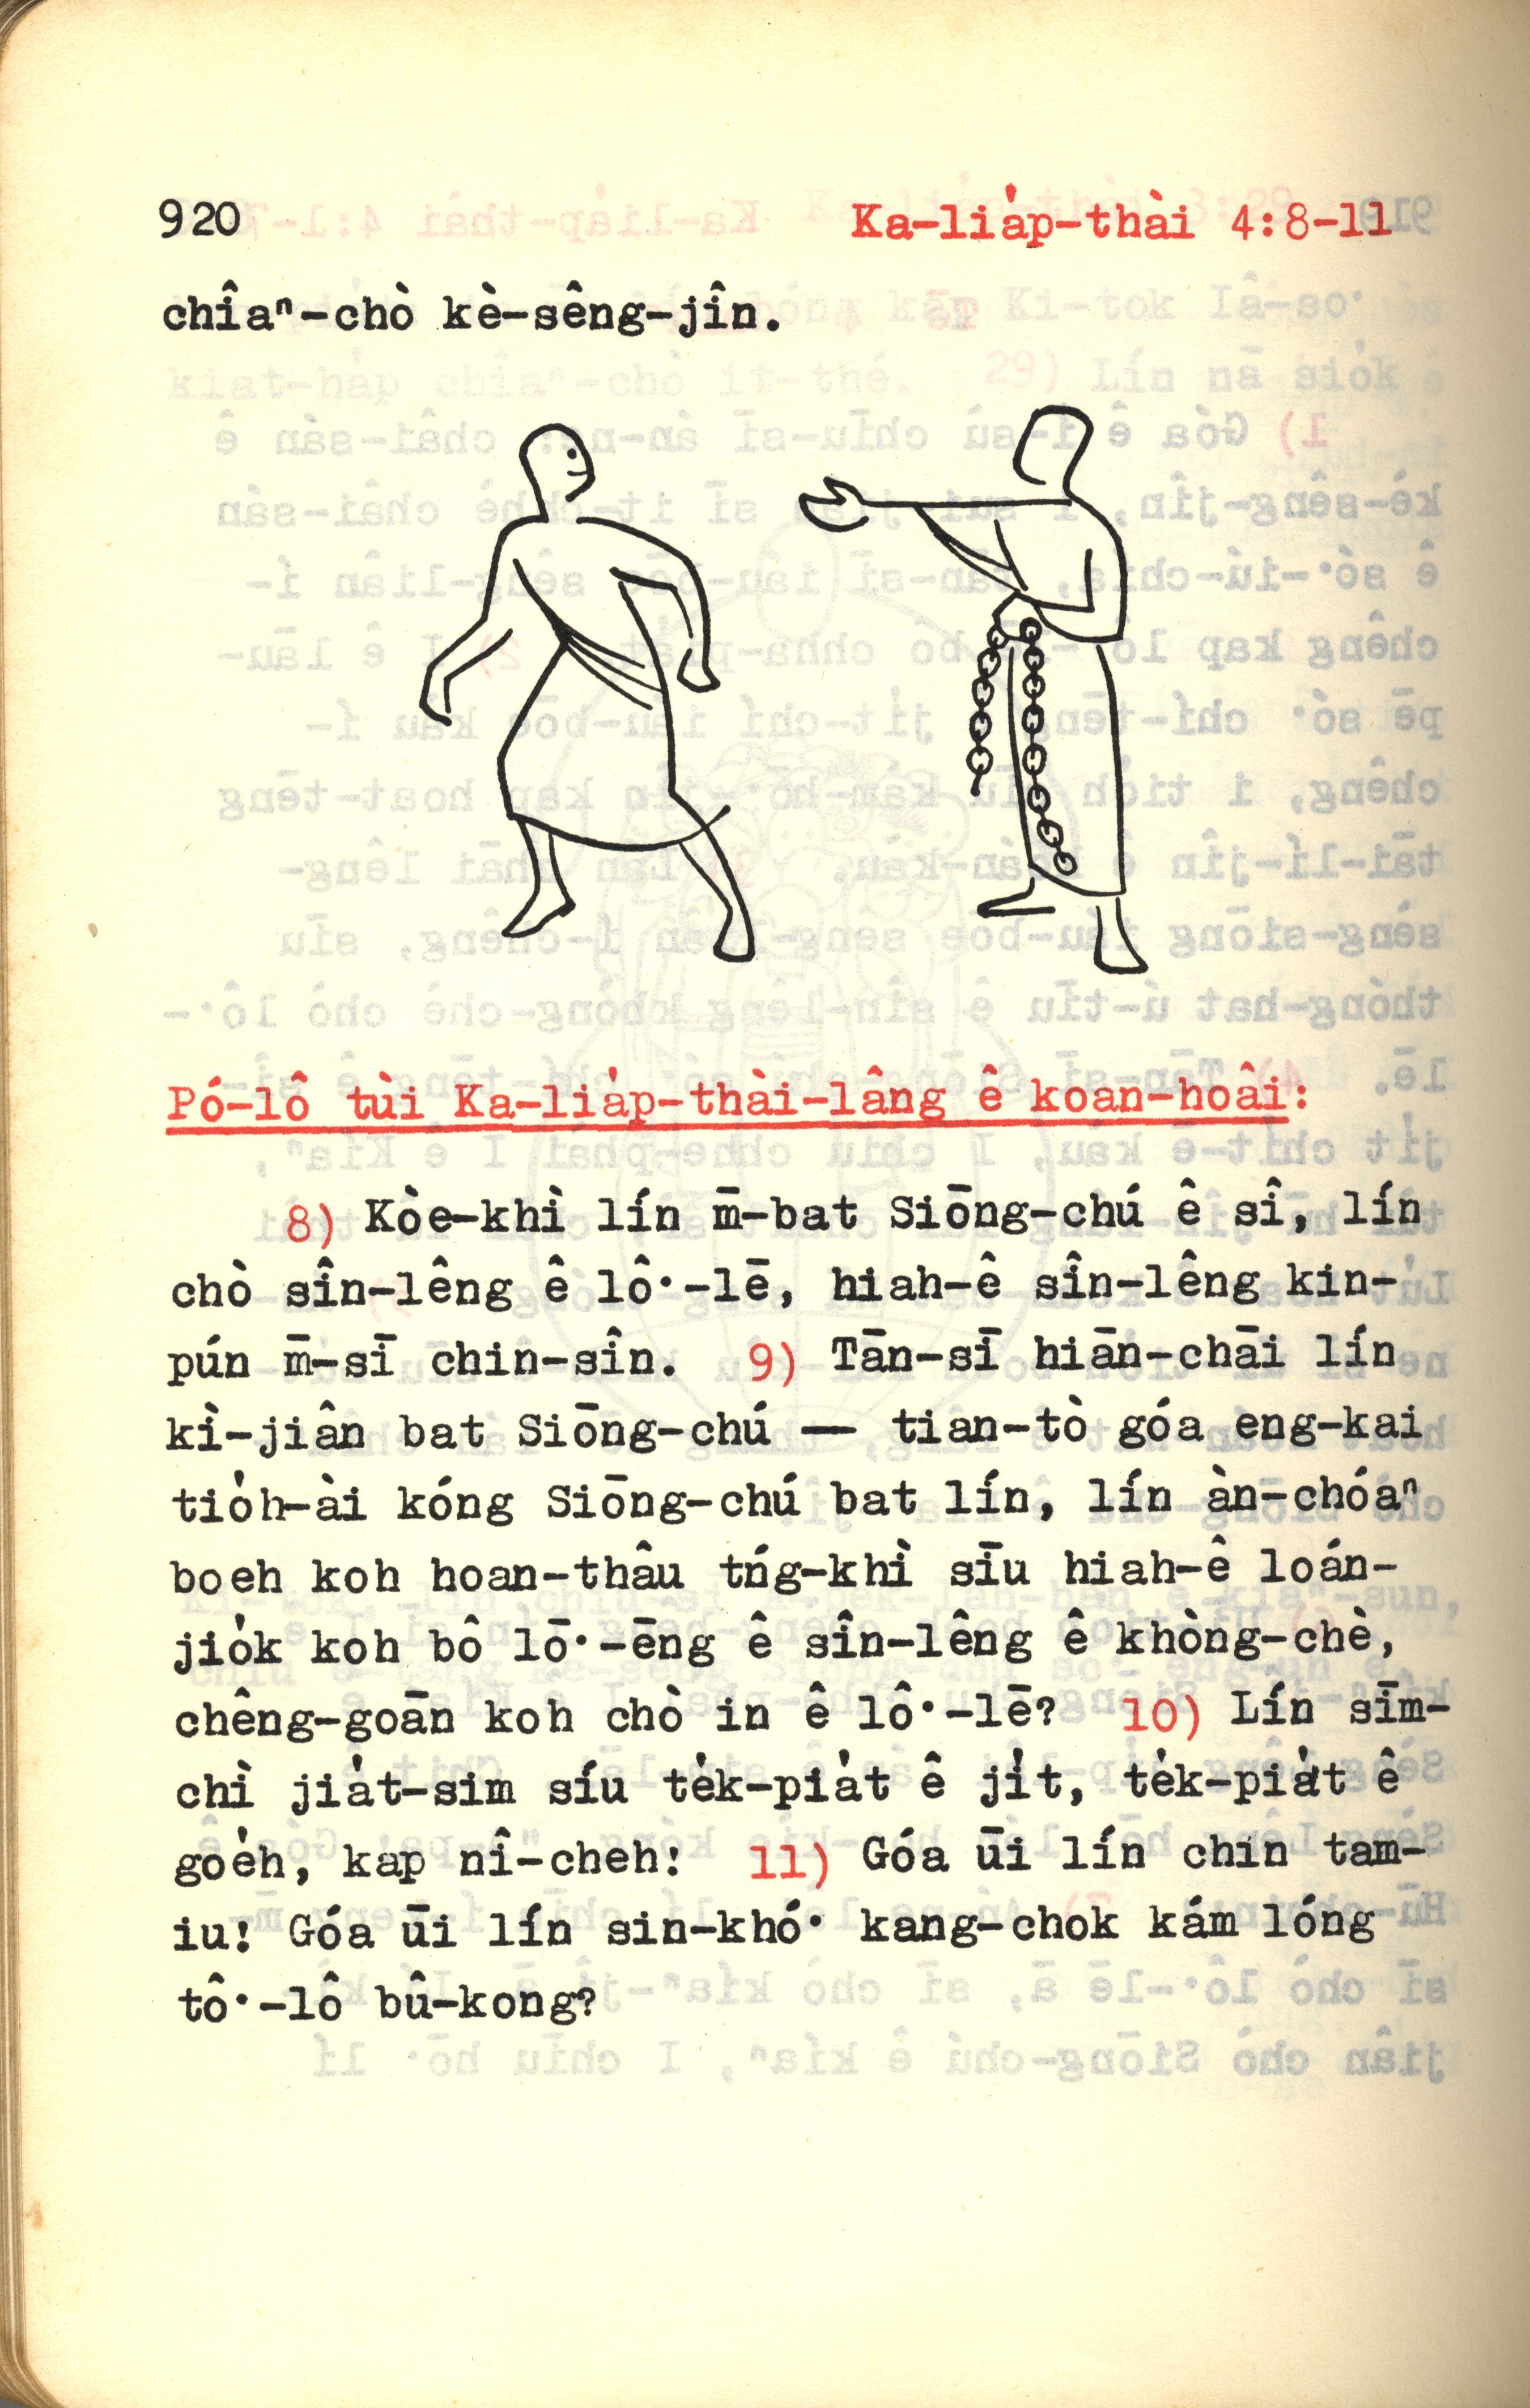 920 Ka-lia̍p-thài 4:8-11
chîaⁿ-chò kè-sêng-jîn.
Pó-lô tùi Ka-lia̍p-thài-lâng ê koan-hoâi:
8) Kòe-khì lín m̄-bat Siōng-chú ê sî, lín
chò sîn-lêng ê lô͘-lē, hiah-ê sîn-lêng kin-
pún m̄-sī chin-sîn. 9) Tān-sī hiān-chāi lín
kì-jiân bat Siōng-chú — tian-tò góa eng-kai
tio̍h-ài kóng Siōng-chú bat lín, lín àn-chóaⁿ
boeh koh hoan-thâu tńg-khì sīu hiah-ê loán-
jio̍k koh bô lō͘-ēng ê sîn-lêng ê khòng-chè,
chêng-goān koh chò in ê lô͘-lē? 10) Lín sīm-
chì jia̍t-sim síu te̍k-pia̍t ê ji̍t, te̍k-pia̍t ê
goe̍h, kap nî-cheh! 11) Góa ūi lín chin tam-
iu! Góa ūi lín sin-khó͘ kang-chok kám lóng
tô͘-lô bû-kong?